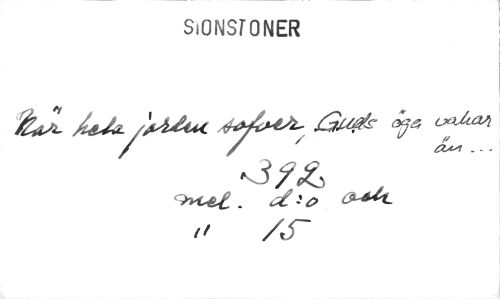 SIONSTONER
När hela jorden sofver, Guds öga vakar
än...
392
mel. d:o och
" 15